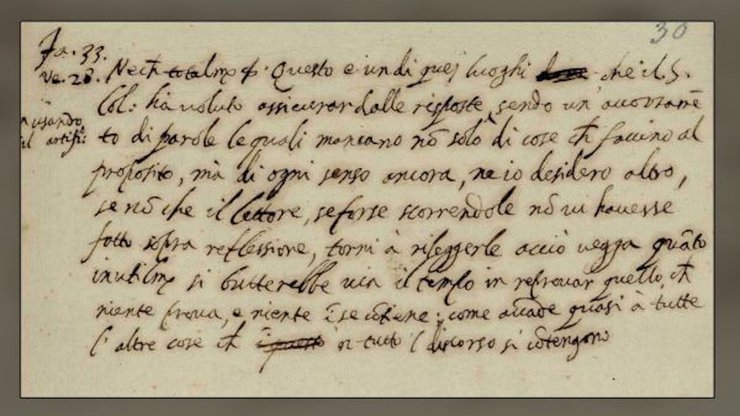 30
Fa. 33.
Ve. 28. Nec th totalmẽ &. Questo è un di quej luoghi che il S.
Col: hà voluto assicurar dalle risposte, sendo un' accozzamẽ
usando
gl' artifi:
to di parole le quali mancano nõ solo di cose ch̃ faccino al
proposito, mà di ogni senso ancora, ne io desidero altro,
se nõ che il lettore, se forse scorrendole nõ vi havesse
fatto sopra reflessione, torni à rileggerle acciò vegga quãto
inutilmẽ si butterebbe via il tempo in reprovar quello, ch̃
niente prova, e niente ĩ se cõtiene; come accade quasi à tutte
l' altre cose ch̃ ĩ tutto l discorso si cõtengono